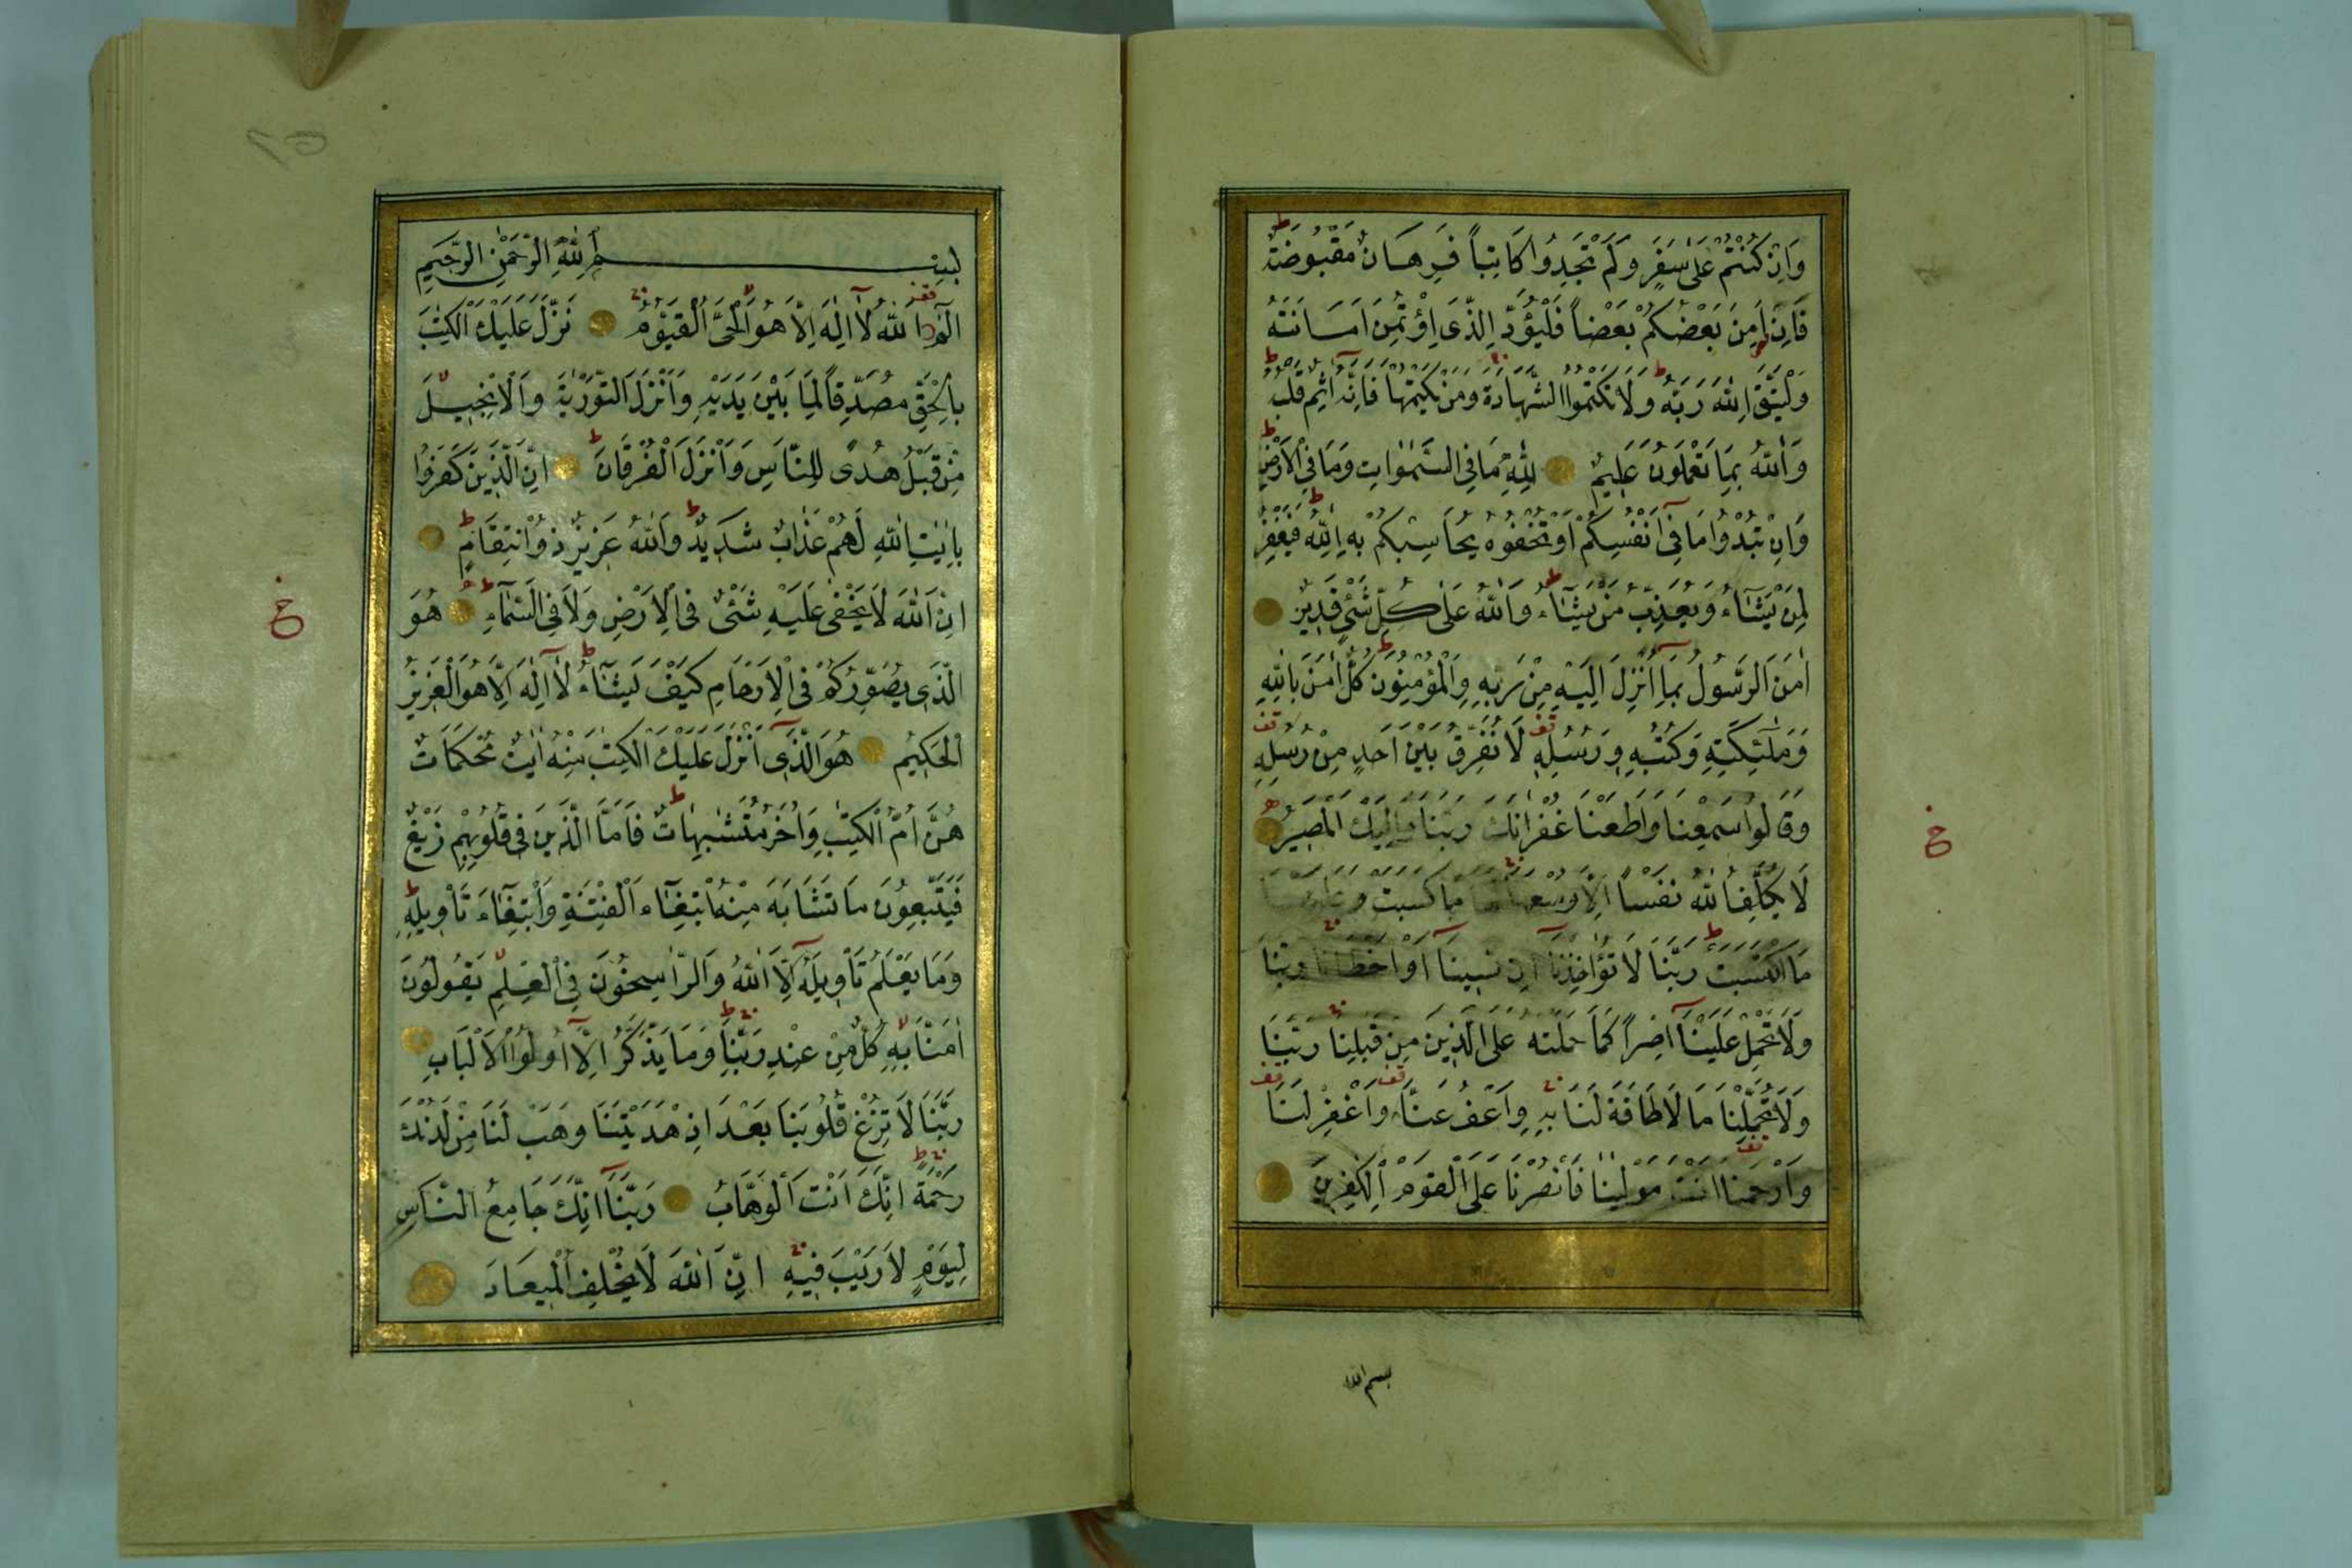 وَاِنْ كُنْتُمْ عَلٰى سَفَرٍ وَلَمْ تَجِدُوا كَاتِباً فَرِهَانٌ مَقْبُوضَةٌ
فَاِنْ اَمِنَ بَعْضُكُمْ بَعْضاً فَلْيُؤَدِّ الَّذِى اؤْتُمِنَ اَمَانَتَهُ
وَلْيَتَّقِ اللّٰهَ رَبَّهُ وَلَا تَكْتُمُوا الشَّهَادَةَ وَمَنْ يَكْتُمْهَا فَاِنَّهُ اٰثِمٌ قَلْبُهُ
وَاللّٰهُ بِمَا تَعْمَلُونَ عَلِيمٌ لِلّٰهِ مَا فِى السَّمٰوَاتِ وَمَا فِى الْاَرْضِ
وَاِنْ تُبْدُوا مَا فِى اَنْفُسِكُمْ اَوْ تُخْفُوهُ يُحَاسِبْكُمْ بِهِ اللّٰهُ فَيَغْفِرُ
لِمَنْ يَشَآءُ وَيُعَذِّبُ مَنْ يَشَآءُ وَاللّٰهُ عَلٰى كُلِّ شَىْءٍ قَدِيرٌ
اٰمَنَ الرَّسُولُ بِمَا اُنْزِلَ اِلَيْهِ مِنْ رَبِّهِ وَالْمُؤْمِنُونَ كُلٌّ اٰمَنَ بِاللّٰهِ
وَمَلٰئِكَتِهِ وَكُتُبِهِ وَرُسُلِهِ لَا نُفَرِّقُ بَيْنَ اَحَدٍ مِنْ رُسُلِهِ
وَقَالُوا سَمِعْنَا وَاَطَعْنَا غُفْرَانَكَ رَبَّنَا وَاِلَيْكَ الْمَصِيرُ
لَا يُكَلِّفُ اللّٰهُ نَفْساً اِلَّا وُسْعَهَا لَهَا مَا كَسَبَتْ وَعَلَيْهَا
مَا اكْتَسَبَتْ رَبَّنَا لَا تُؤَاخِذْنَا اِنْ نَسِينَا اَوْ اَخْطَأْنَا رَبَّنَا
وَلَا تَحْمِلْ عَلَيْنَا اِصْراً كَمَا حَمَلْتَهُ عَلَى الَّذِينَ مِنْ قَبْلِنَا رَبَّنَا
وَلَا تُحَمِّلْنَا مَا لَا طَاقَةَ لَنَا بِهِ وَاعْفُ عَنَّا وَاغْفِرْ لَنَا
وَارْحَمْنَا اَنْتَ مَوْلٰينَا فَانْصُرْنَا عَلَى الْقَوْمِ الْكٰفِرِينَ
بسم الله
خ
بِسْمِ اللّٰهِ الرَّحْمٰنِ الرَّحِيمِ
الٓمٓ اللّٰهُ لَا اِلٰهَ اِلَّا هُوَ الْحَىُّ الْقَيُّومُ نَزَّلَ عَلَيْكَ الْكِتٰبَ
بِالْحَقِّ مُصَدِّقاً لِمَا بَيْنَ يَدَيْهِ وَاَنْزَلَ التَّوْرٰيةَ وَالْاِنْجِيلَ
مِنْ قَبْلُ هُدًى لِلنَّاسِ وَاَنْزَلَ الْفُرْقَانَ اِنَّ الَّذِينَ كَفَرُوا
بِاٰيٰتِ اللّٰهِ لَهُمْ عَذَابٌ شَدِيدٌ وَاللّٰهُ عَزِيزٌ ذُو انْتِقَامٍ
اِنَّ اللّٰهَ لَا يَخْفٰى عَلَيْهِ شَىْءٌ فِى الْاَرْضِ وَلَا فِى السَّمَآءِ هُوَ
الَّذِى يُصَوِّرُكُمْ فِى الْاَرْحَامِ كَيْفَ يَشَآءُ لَا اِلٰهَ اِلَّا هُوَ الْعَزِيزُ
الْحَكِيمُ هُوَ الَّذِى اَنْزَلَ عَلَيْكَ الْكِتٰبَ مِنْهُ اٰيٰتٌ مُحْكَمَاتٌ
هُنَّ اُمُّ الْكِتٰبِ وَاُخَرُ مُتَشٰبِهَاتٌ فَاَمَّا الَّذِينَ فِى قُلُوبِهِمْ زَيْغٌ
فَيَتَّبِعُونَ مَا تَشَابَهَ مِنْهُ ابْتِغَآءَ الْفِتْنَةِ وَابْتِغَآءَ تَأْوِيلِهِ
وَمَا يَعْلَمُ تَأْوِيلَهُ اِلَّا اللّٰهُ وَالرَّاسِخُونَ فِى الْعِلْمِ يَقُولُونَ
اٰمَنَّا بِهِ كُلٌّ مِنْ عِنْدِ رَبِّنَا وَمَا يَذَّكَّرُ اِلَّا اُولُوا الْاَلْبَابِ
رَبَّنَا لَا تُزِغْ قُلُوبَنَا بَعْدَ اِذْ هَدَيْتَنَا وَهَبْ لَنَا مِنْ لَدُنْكَ
رَحْمَةً اِنَّكَ اَنْتَ الْوَهَّابُ رَبَّنَا اِنَّكَ جَامِعُ النَّاسِ
لِيَوْمٍ لَا رَيْبَ فِيهِ اِنَّ اللّٰهَ لَا يُخْلِفُ الْمِيعَادَ
خ